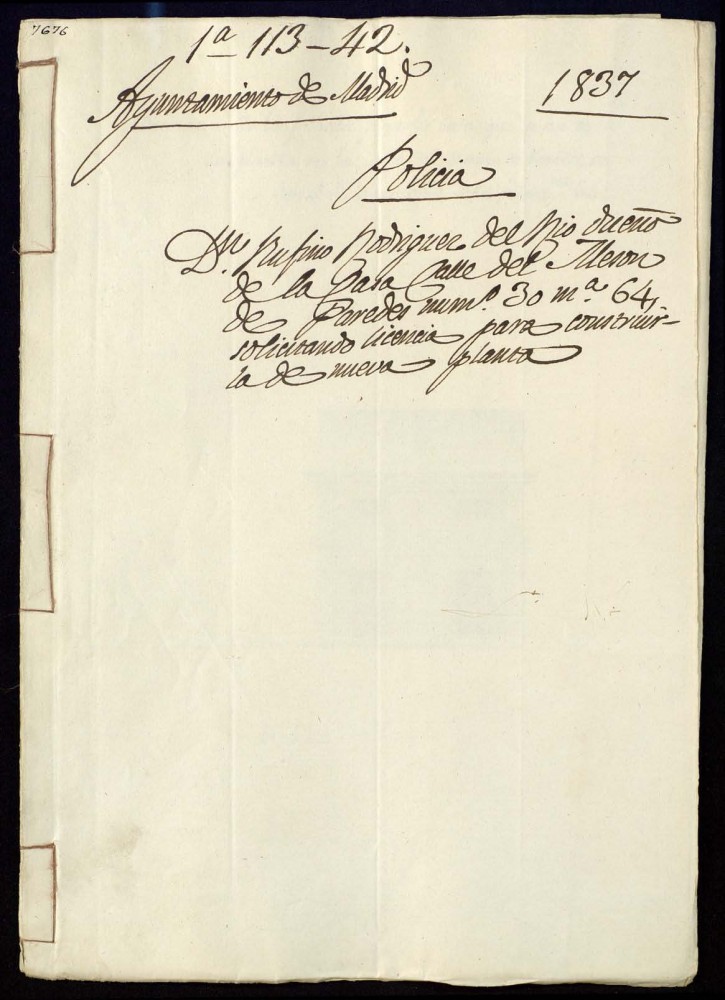 7676
1ª 113-42.
Ayuntamiento de Madrid
1837
Policia
Dn. Rufino Rodriguez del Rio dueño
de la Casa Calle del Meson
de Paredes num.º 30 m.ª 64,
solicitando licencia para construir-
la de nueva planta